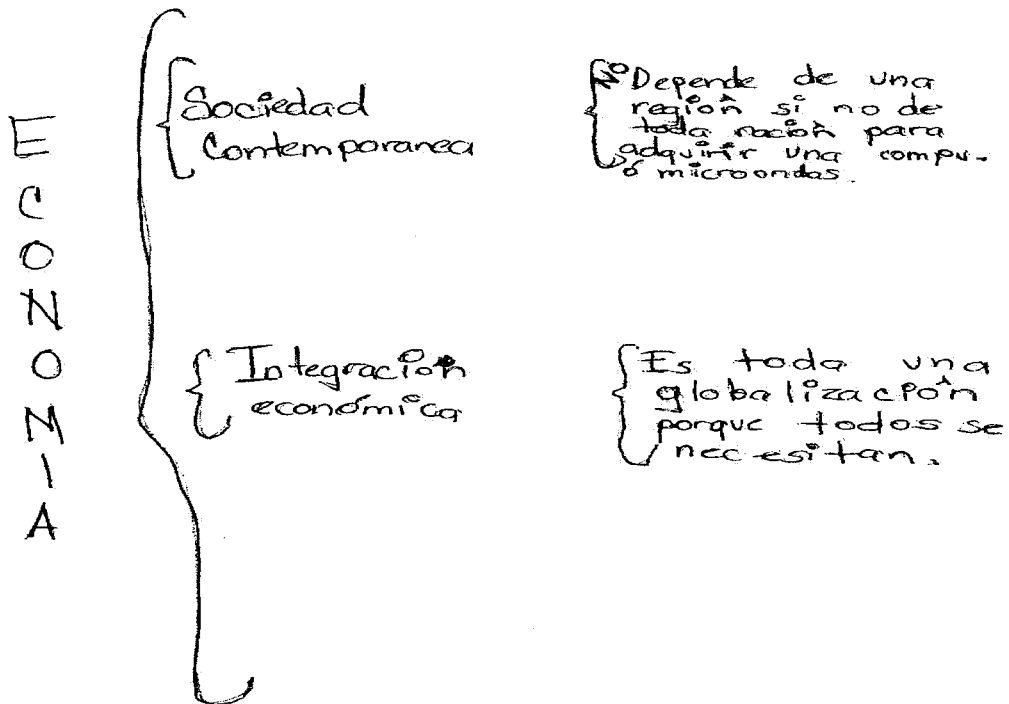 ECONOMIA
Sociedad
Contemporanea
Depende de una
región si no de
toda nación para
adquirir una compu.
ó microondas.
Integración
económica
Es toda una
globalización
porque todos se
necesitan.